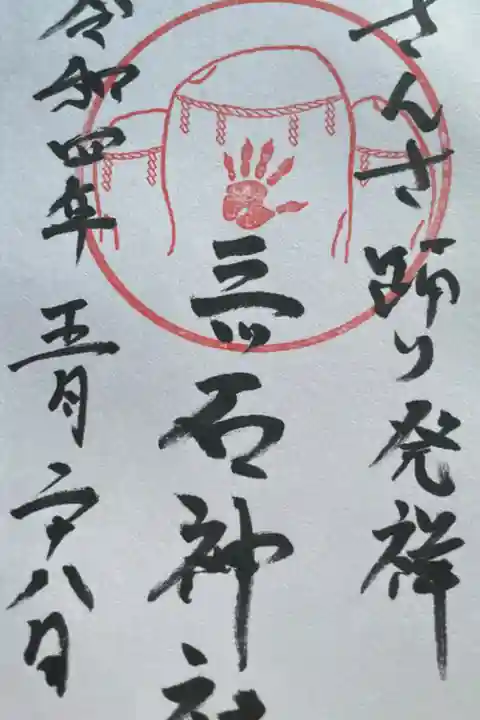 さんさ踊り発祥
三ツ石神社
令和四年五月二十八日